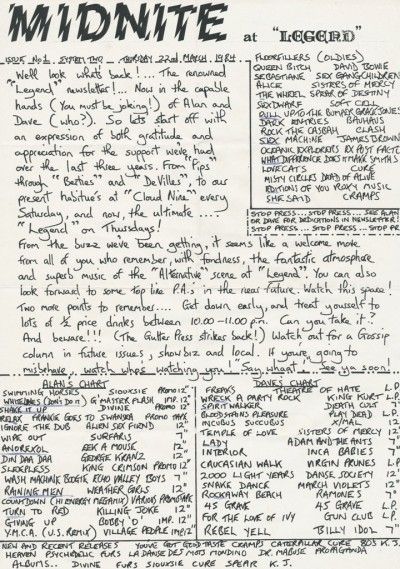 MIDNITE at "LEGEND"
ISSUE No 1 SERIES TWO — THURSDAY 22nd. MARCH, 1984
Well look whats back!... The renowned
"Legend" newsletter!... Now in the capable
hands (You must be joking!) of Alan and
Dave (who?). So lets start off with
an expression of both gratitude and
appreciation for the support weve had
over the last three years. From "Pips"
through "Berties" and "DeVilles", to our
present habitués at "Cloud Nine" every
Saturday, and now, the ultimate....
"Legend" on Thursdays!
From the buzz weve been getting, it seems like a welcome move
from all of you who remember, with fondness, the fantastic atmosphere
and superb music of the "Alternative" scene at "Legend". You can also
look forward to some Top Line P.A.s in the near future. Watch this space!
Two more points to remember.... Get down early, and treat yourself to
lots of ½ price drinks between 10.00-11.00 p.m. Can you take it??
And beware!!! (The Gutter Press strikes back!) Watch out for a Gossip
column in future issues, showbiz and local. If youre going to
misbehave.. watch whos watching you! Say what... See ya soon!
FLOORFILLERS (OLDIES)
QUEEN BITCH DAVID BOWIE
SEBASTIANE SEX GANG CHILDREN
ALICE SISTERS OF MERCY
THE WHEEL SPEAR OF DESTINY
SEXDWARF SOFT CELL
PULL UP TO THE BUMPER GRACE JONES
DARK ENTRIES BAUHAUS
ROCK THE CASBAH CLASH
SEX MACHINE JAMES BROWN
OCEANIC EXPLORERS EX POST FACTO
WHAT DIFFERENCE DOES IT MAKE SMITHS
LOVECATS CURE
MISTY CIRCLES DEAD OR ALIVE
EDITIONS OF YOU ROXY MUSIC
SHE SAID CRAMPS
STOP PRESS... STOP PRESS... SEE ALAN
OR DAVE FOR DEDICATIONS IN NEWSLETTER!
STOP PRESS... STOP PRESS... STOP PR
ALAN'S CHART
SWIMMING HORSES SIOUXSIE PROMO 12"
WHITELINES (DON'T DO IT) G MASTER FLASH IMP. 12"
SHAKE IT UP DIVINE PROMO 12"
RELAX FRANKIE GOES TO SWANSEA PROMO TAPE
IGNORE THE DUB ALIEN SEX FIEND 12"
WIPE OUT SURFARIS 7"
ANOREXOL EEK A MOUSE 12"
DIN DAA DAA GEORGE KRANZ 12"
SLEEPLESS KING CRIMSON PROMO 12"
WASH MACHINE BOOGIE ECHO VALLEY BOYS 7"
RAINING MEN WEATHER GIRLS 12"
COUNTDOWN (HI ENERGY MEGAMIX) VARIOUS PROMO TAPE
TURN TO RED KILLING JOKE 12"
GIVING UP BOBBY 'O' IMP. 12"
Y.M.C.A. (U.S. REMIX) VILLAGE PEOPLE IMP 12"
DAVES CHART
FREAKS THEATRE OF HATE L.P.
WRECK A PARTY ROCK KING KURT L.P.
SPIRITWALKER DEATH CULT 7"
BLOODSTAINS PLEASURE PLAY DEAD L.P.
INCUBUS SUCCUBUS X/MAL 12"
TEMPLE OF LOVE SISTERS OF MERCY 12"
LADY ADAM AND THE ANTS 7"
INTERIOR INCA BABIES 7"
CAUCASIAN WALK VIRGIN PRUNES L.P.
2,000 LIGHT YEARS DANSE SOCIETY 12"
SNAKE DANCE MARCH VIOLETS 12"
ROCKAWAY BEACH RAMONES 7"
45 GRAVE 45 GRAVE L.P.
FOR THE LOVE OF IVY GUN CLUB L.P.
REBEL YELL BILLY IDOL 7"
NEW AND RECENT RELEASES YOU'VE GOT GOOD TASTE CRAMPS CATERPILLAR CURE BOX K.J.
HEAVEN PSYCHEDELIC FURS LA DANSE DES MOTS MONDINO DR. MABUSE PROPAGANDA
ALBUMS.. DIVINE FURS SIOUXSIE CURE SPEAR K.J.